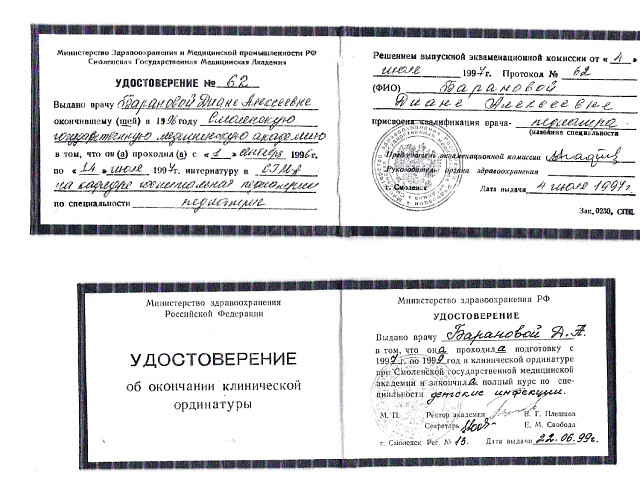 Министерство Здравоохранения и Медицинской промышленности РФ
Смоленская Государственная Медицинская Академия
УДОСТОВЕРЕНИЕ № 62
Выдано врачу Барановой Диане Алексеевне
окончившему (шей) в 1996 году Смоленскую
государственную медицинскую академию
в том, что он (а) проходил (а) с «1» сентября 1996 г.
по «24» июля 1997г. интернатуру в СГМА
на кафедре госпитальной педиатрии
по специальности педиатрия
Решением выпускной экзаменационной комиссии от «4»
июля 1997г. Протокол № 62
(ФИО) Барановой
Диане Алексеевне
присвоена квалификация врача- педиатра
(название специальности
Председатель экзаменационной комиссии
Руководитель органа здравоохранения
г. Смоленск Дата выдачи 4 июля 1997г.
Зак. 0250, СПЦ.
Министерство здравоохранения
Российской Федерации
УДОСТОВЕРЕНИЕ
об окончании клинической
ординатуры
Министерство здравоохранения РФ
УДОСТОВЕРЕНИЕ
Выдано врачу Барановой Д.А.
в том, что она проходила подготовку с
1997 г. по 1999 год в клинической ординатуре
при Смоленской государственной медицинской
академии и закончила полный курс по спе-
циальности детские инфекции.
М. П. Ректор академии В. Г. Плешков
Секретарь Е. М. Свобода
г. Смоленск Рег. № 13. Дата выдачи 22.06.99г.